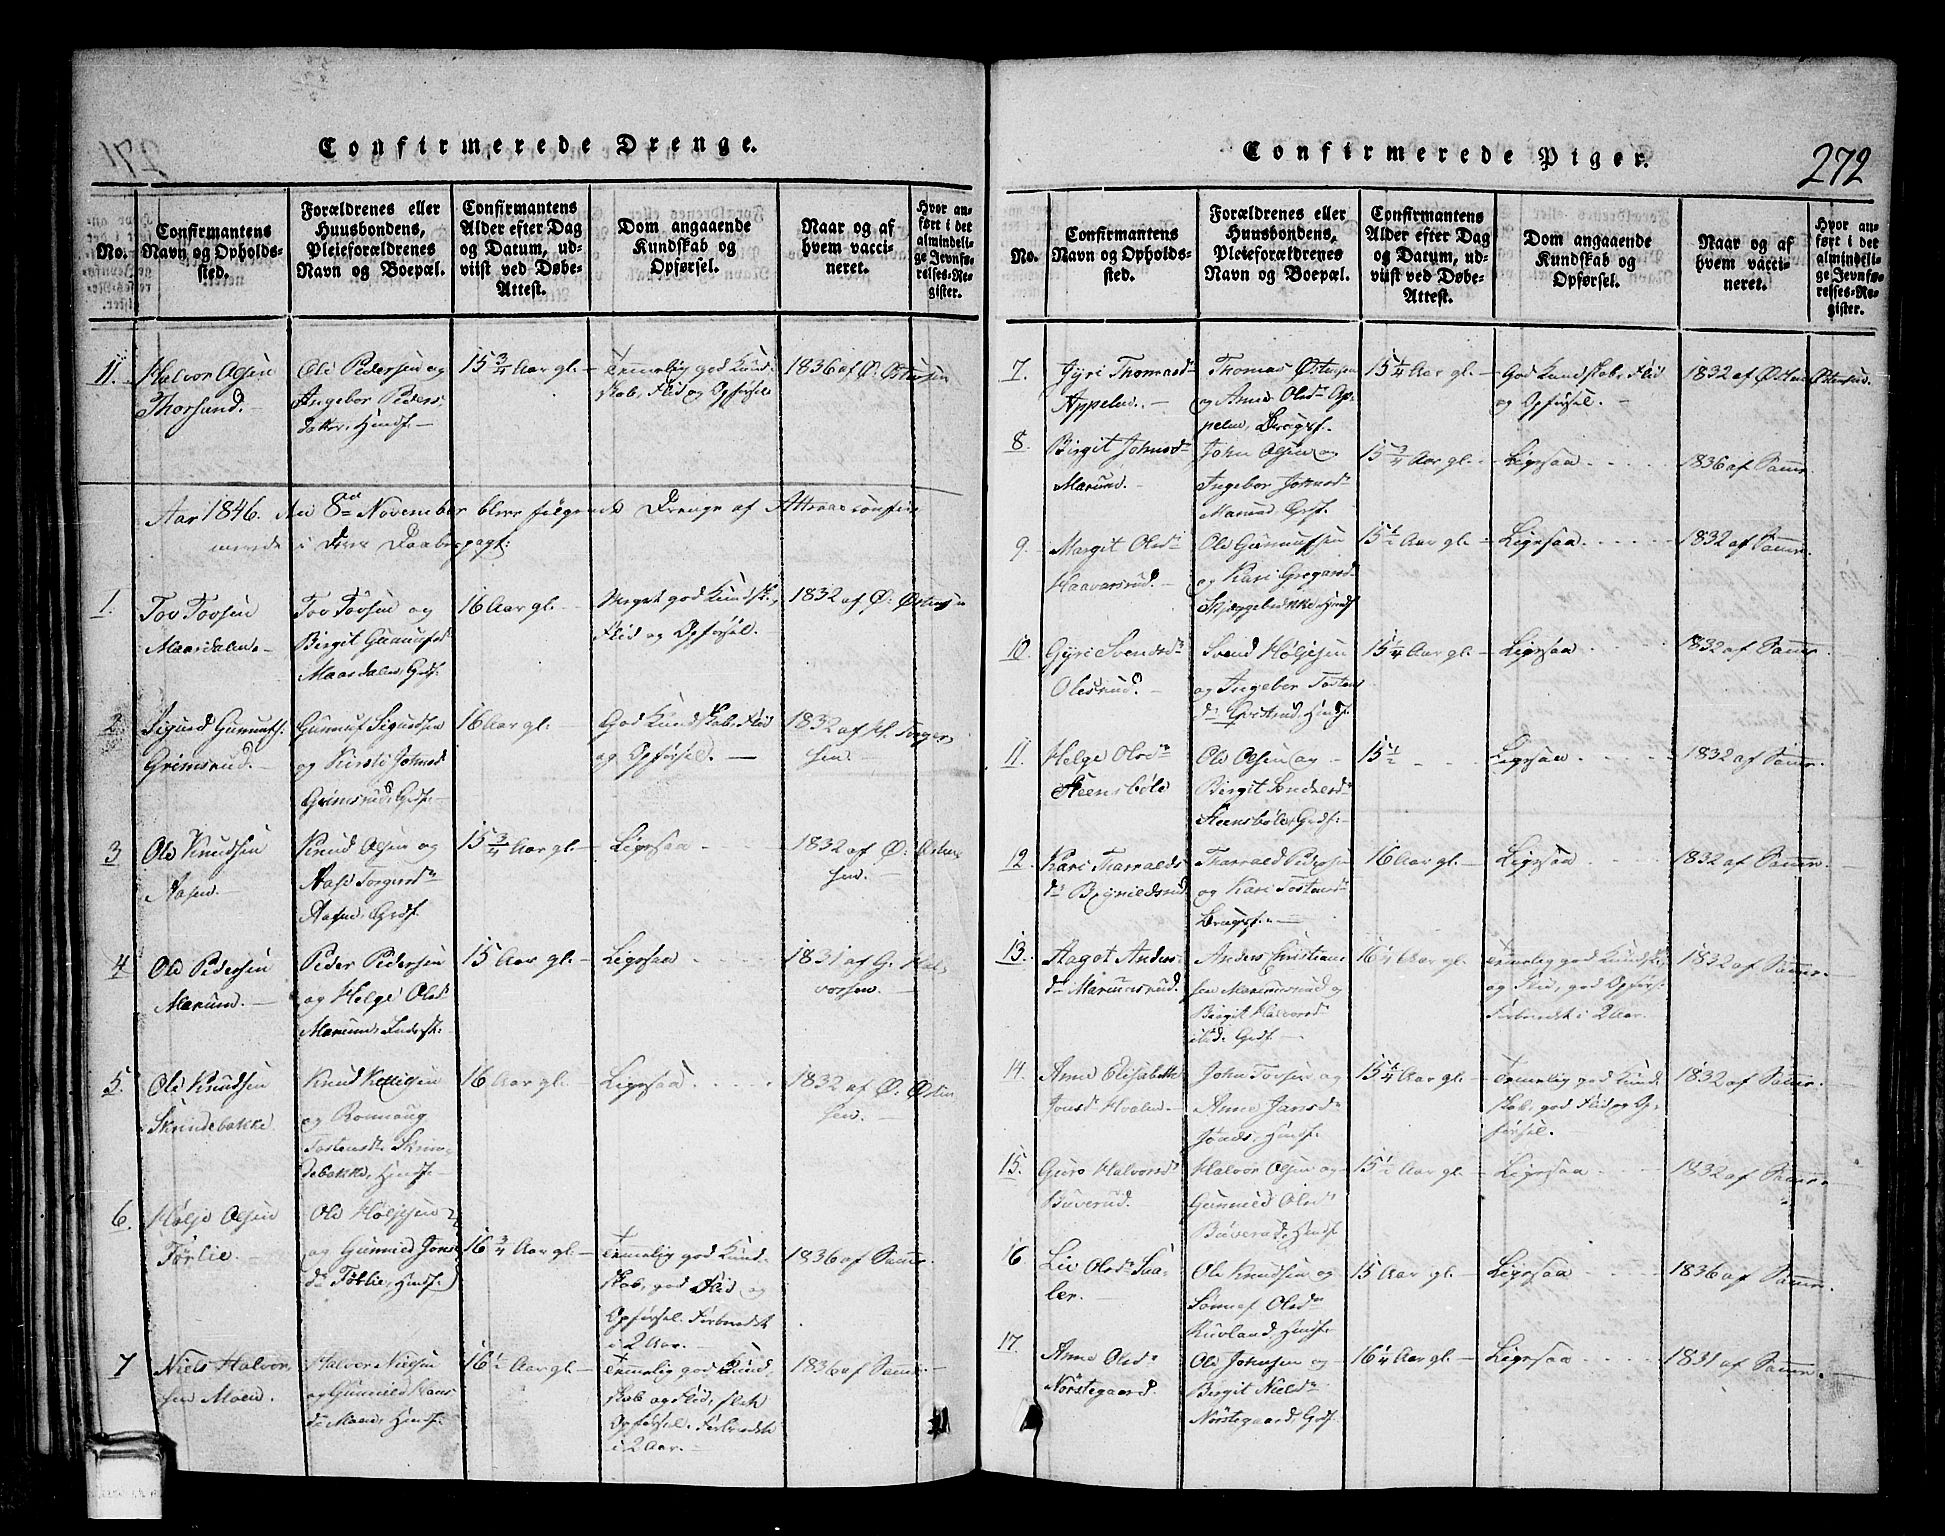 Confirmerede Drenge.
No.
Confirmantens
Navn og Opholds-
sted.
Forældrenes eller
Huusbondens,
Pleieforældrenes
Navn og Boepæl.
Confirmantens
Alder efter Dag
og Datum, ud-
viist ved Døbe-
Attest.
Dom angaaende
Kundskab og
Opførsel.
Naar og af
hvem vacci-
neret.
Hvor an-
ført i det
almindeli-
ge Jevnfø-
relses-Re-
gister.
11.
Halvor Olsen
Thorsund.
Ole Pedersen og
Ingebor Peders
datter, Huusf.
15 3/4 Aar gl.
Temmelig god Kund-
skab, Flid og Opførsel
1836 af Ø. Østensen
Aar 1846. den 8de November bleve følgende Drenge af Attraae confir-
merede i
1.
Tov Tovsen
Maasdalen.
Tov Tovsen og
Birgit Gunnufsd
Maasdalen, Gdf.
16 Aar gl.
Meget god Kundsk.,
Flid og Opførsel.
1832 af Ø. Østensen
2
Sigurd Gunnufs.
Grimsrud.
Gunnuf Sigurdsen
og Kirsti Johnsd
Grimsrud, Gdf.
16 Aar gl.
God Kundskab, Flid
og Opførsel.
1832 af H. Torger-
sen.
3
Ole Knudsen
Aasen
Knud Olsen og
Aase Torgersdr
Aasen, Gdf.
15 3/4 Aar gl.
Ligesaa
1832 af Ø. Østen-
sen.
4
Ole Pedersen
Marum.
Peder Pedersen
og Helge Olsd
Marum, Inderst.
15 Aar gl.
Ligesaa
1831 af G. Hal-
vorsen.
5.
Ole Knudsen
Skrindebakke
Knud Kittilsen
og Ronnaug
Tostensdr Skrin-
debakke, Huusf.
16 Aar gl.
Ligesaa
1832 af Ø. Østen
sen.
6.
Holje Olsen
Torlie.
Ole Holjesen
og Gunnild Jons
dr Torlie, Huusf.
16 3/4 Aar gl.
Temmelig god Kund-
skab, god Flid og
Opførsel. Forberedt
i 2 Aar.
1836 af Samme.
7
Niels Halvor
sen Moen.
Halvor Nielsen
og Gunnild Hans
dr Moen, Huusf.
16 1/2 Aar gl.
Temmelig god Kund
skab og Flid, slet
Opførsel. Forberedt
i 2 Aar.
1836 af Samme
Confirmerede Piger.
272
No.
Confirmantens
Navn og Opholds-
sted.
Forældrenes eller
Huusbondens,
Pleieforældrenes
Navn og Boepæl.
Confirmantens
Alder efter Dag
og Datum, ud-
viist ved Døbe-
Attest.
Dom angaaende
Kundskab og
Opførsel.
Naar og af
hvem vacci-
neret.
Hvor an-
ført i det
almindeli-
ge Jevnfø-
relses-Re-
gister.
7
Jyri Thomasdr
Appelen.
Thomas Østensen
og Anne Olsdr Ap-
pelen, Brugsf.
15 1/4 Aar gl.
God Kundskab, Flid
og Opførsel.
1832 af Østen Østensen.
8
Birgit Johnsdr
Marum.
John Olsen og
Ingebor Johnsdr
Marum, Gdf.
15 3/4 Aar gl.
Ligesaa
1836 af Samme
9.
Margit Olsdr
Haavarsrud.
Ole Gunnufsen
og Kari Gregarsdr
15 1/2 Aar gl.
Ligesaa
1832 af Samme
10.
Gyri Svendsdr
Olesrud.
Svend Holjesen
og Ingebor Tostens
dr Huusf.
15 1/4 Aar gl.
Ligesaa
1832 af Samme
11.
Helge Olsdr
Steensbøle
Ole Olsen og
Birgit Sondresdr
Steensbøle, Gdf.
15 1/2
Ligesaa
1832 af Samme
12.
Kari Tharalds
dr
Tharald Pedersen
og Kari Tostensdr
Brugsf.
16 Aar gl.
Ligesaa
1832 af Samme.
13.
Aagot Anders
dr
Anders Christian-
sen og
Birgit Halvorsdr
ibid. Gdf.
16 1/4 Aar gl.
Temmelig god Kundsk.
og Flid, god Opførs.
Forberedt i 2 Aar.
1832 af Samme.
14.
Anne Elisabeth
Jonsdr Hvalen
John Torsen og
Anne Jansdr
Huusf.
15 1/4 Aar gl.
Temmelig god Kund-
skab, god Flid og Op-
førsel.
1832 af Samme.
15.
Guro Halvorsdr
Büverud.
Halvor Olsen og
Gunnild Olsdr
Büverud, Huusf.
15 1/2 Aar gl.
Ligesaa
1832 af Samme
16
Liv Olsdr Saa-
ler.
Ole Knudsen og
Sønnef Olsdr
Huusf.
15 Aar gl.
Ligesaa
1836 af Samme.
17.
Anne Olsdr
Nørstegaard.
Ole Johnsen og
Birgit Nielsdr
Nørstegaard, Gdf.
16 1/4 Aar gl.
Ligesaa
1831 af Samme.